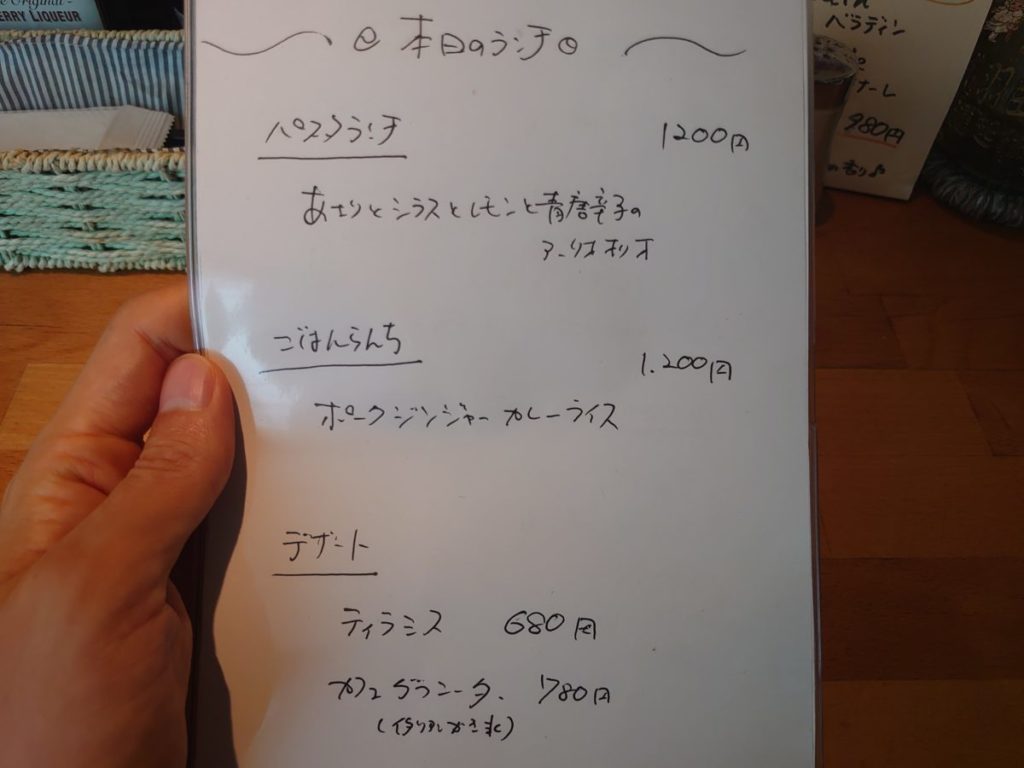 Original -
ERRY LIQUEUR
本日のランチ
パスタランチ 1200円
あさりとシラスとレモンと青唐辛子の
アーリオオリオ
ごはんらんち 1.200円
ポークジンジャーカレーライス
デザート
ティラミス 680円
カフェグラニータ. 780円
(イタリアンかき氷)
ベラディン
980円
の香り♪